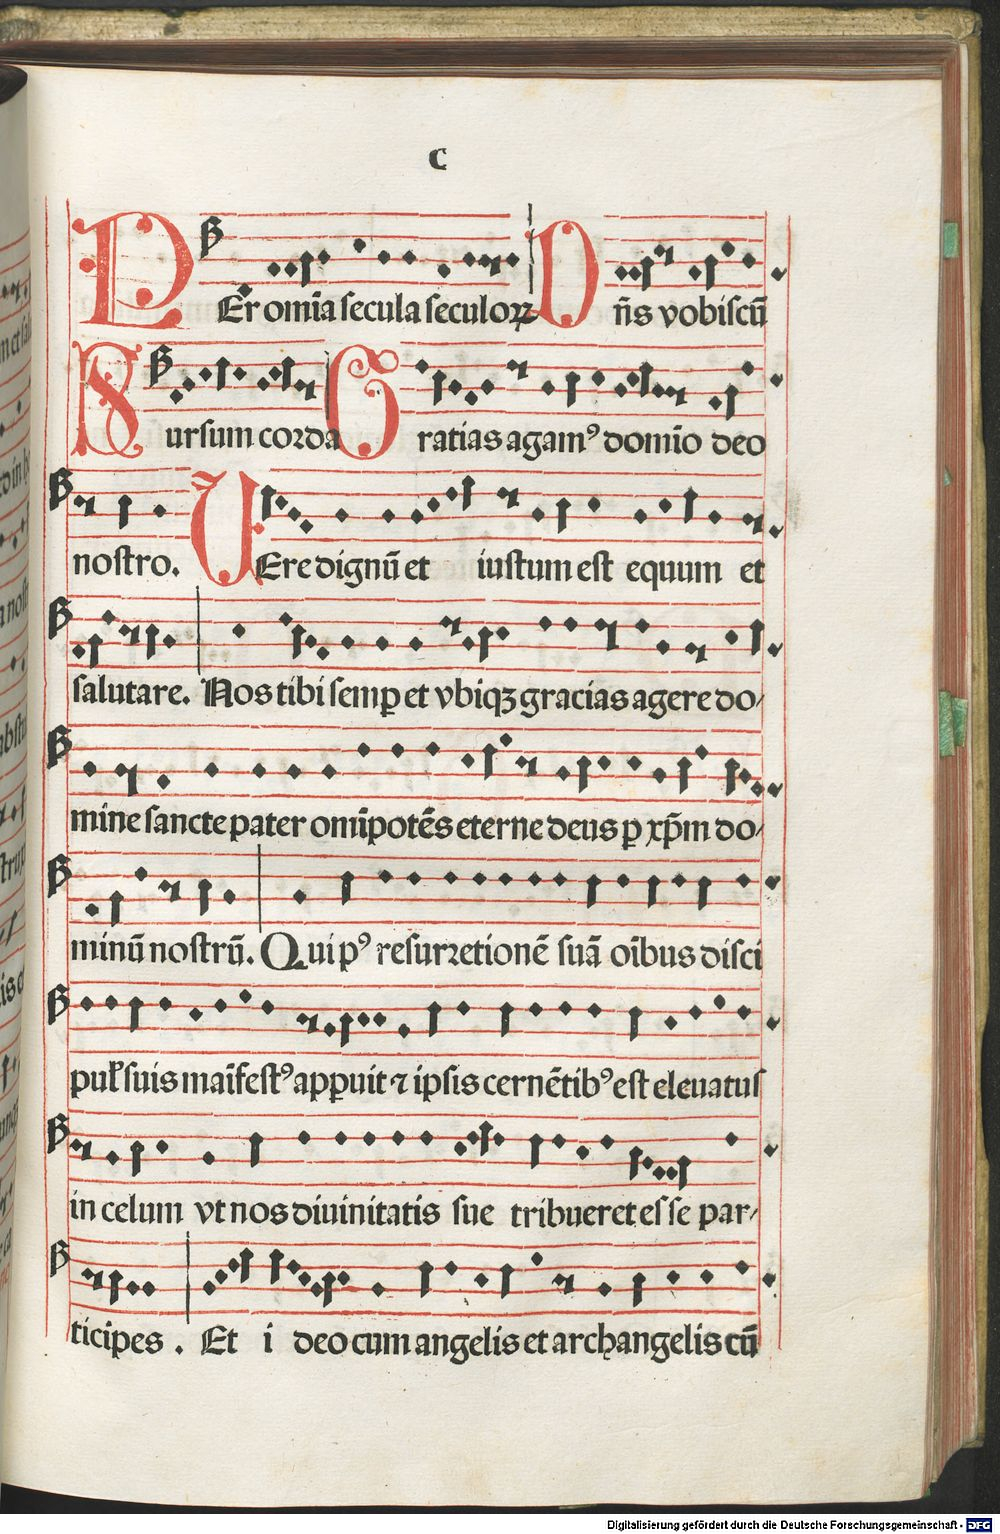 C
PEr om̄ia secula seculoꝝ Dn̄s vobiscū
Sursum corda Gratias agamꝰ domīo deo
nostro. VEre dignū et iustum est equum et
salutare. Nos tibi semꝑ et vbiqꝫ gracias agere do/
mine sancte pater omīpotēs eterne deus ꝑ xp̄m do/
minū nostrū. Qui pꝰ resurretionē suā oībus disci
pul' suis maīfestꝰ apꝑuit ⁊ ipsis cernētibꝰ est eleuatus
in celum vt nos diuinitatis sue tribueret esse par/
ticipes . Et i deo cum angelis et archangelis cū
Digitalisierung gefördert durch die Deutsche Forschungsgemeinschaft - DFG